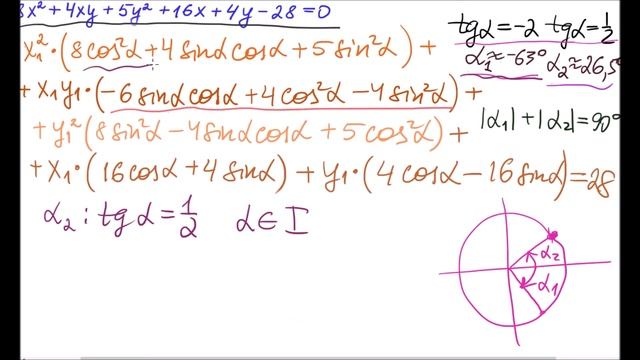 8x² + 4xy + 5y² + 16x + 4y - 28 = 0
tgα = -2 tgα = 1/2
α₁ ≈ -63° α₂ ≈ 26,5°
x₁² · (8cos²α + 4sinαcosα + 5sin²α) +
+ x₁y₁ · (-6sinαcosα + 4cos²α - 4sin²α) +
|α₁| + |α₂| = 90°
+ y₁² (8sin²α - 4sinαcosα + 5cos²α) +
+ x₁ · (16cosα + 4sinα) + y₁ · (4cosα - 16sinα) = 28
α₂ : tgα = 1/2 α ∈ I
α₂
α₁